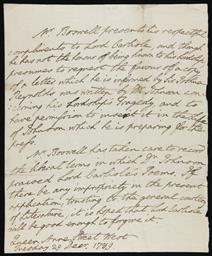 Mr. Boswell presents his respectful
compliments to Lord Carlisle, and though
he has not the honour of being known to his Lordship
presumes to request the favour of a copy
of a letter which he is informed by Sir Joshua
Reynolds was written by Dr. Johnson con
cerning his Lordship's Tragedy and to
have permission to insert it in the Life
of Johnson which he is preparing for the
press.
Mr. Boswell has taken care to record
the liberal terms in which Dr. Johnson
praised Lord Carlisle's Poems. If
there be any impropriety in the present
application, trusting to the general courtesy
of Literature, it is hoped that Lord Carlisle
will be good enough to forgive it.
Queen Anne Street West
Tuesday 29 Dec. 1789